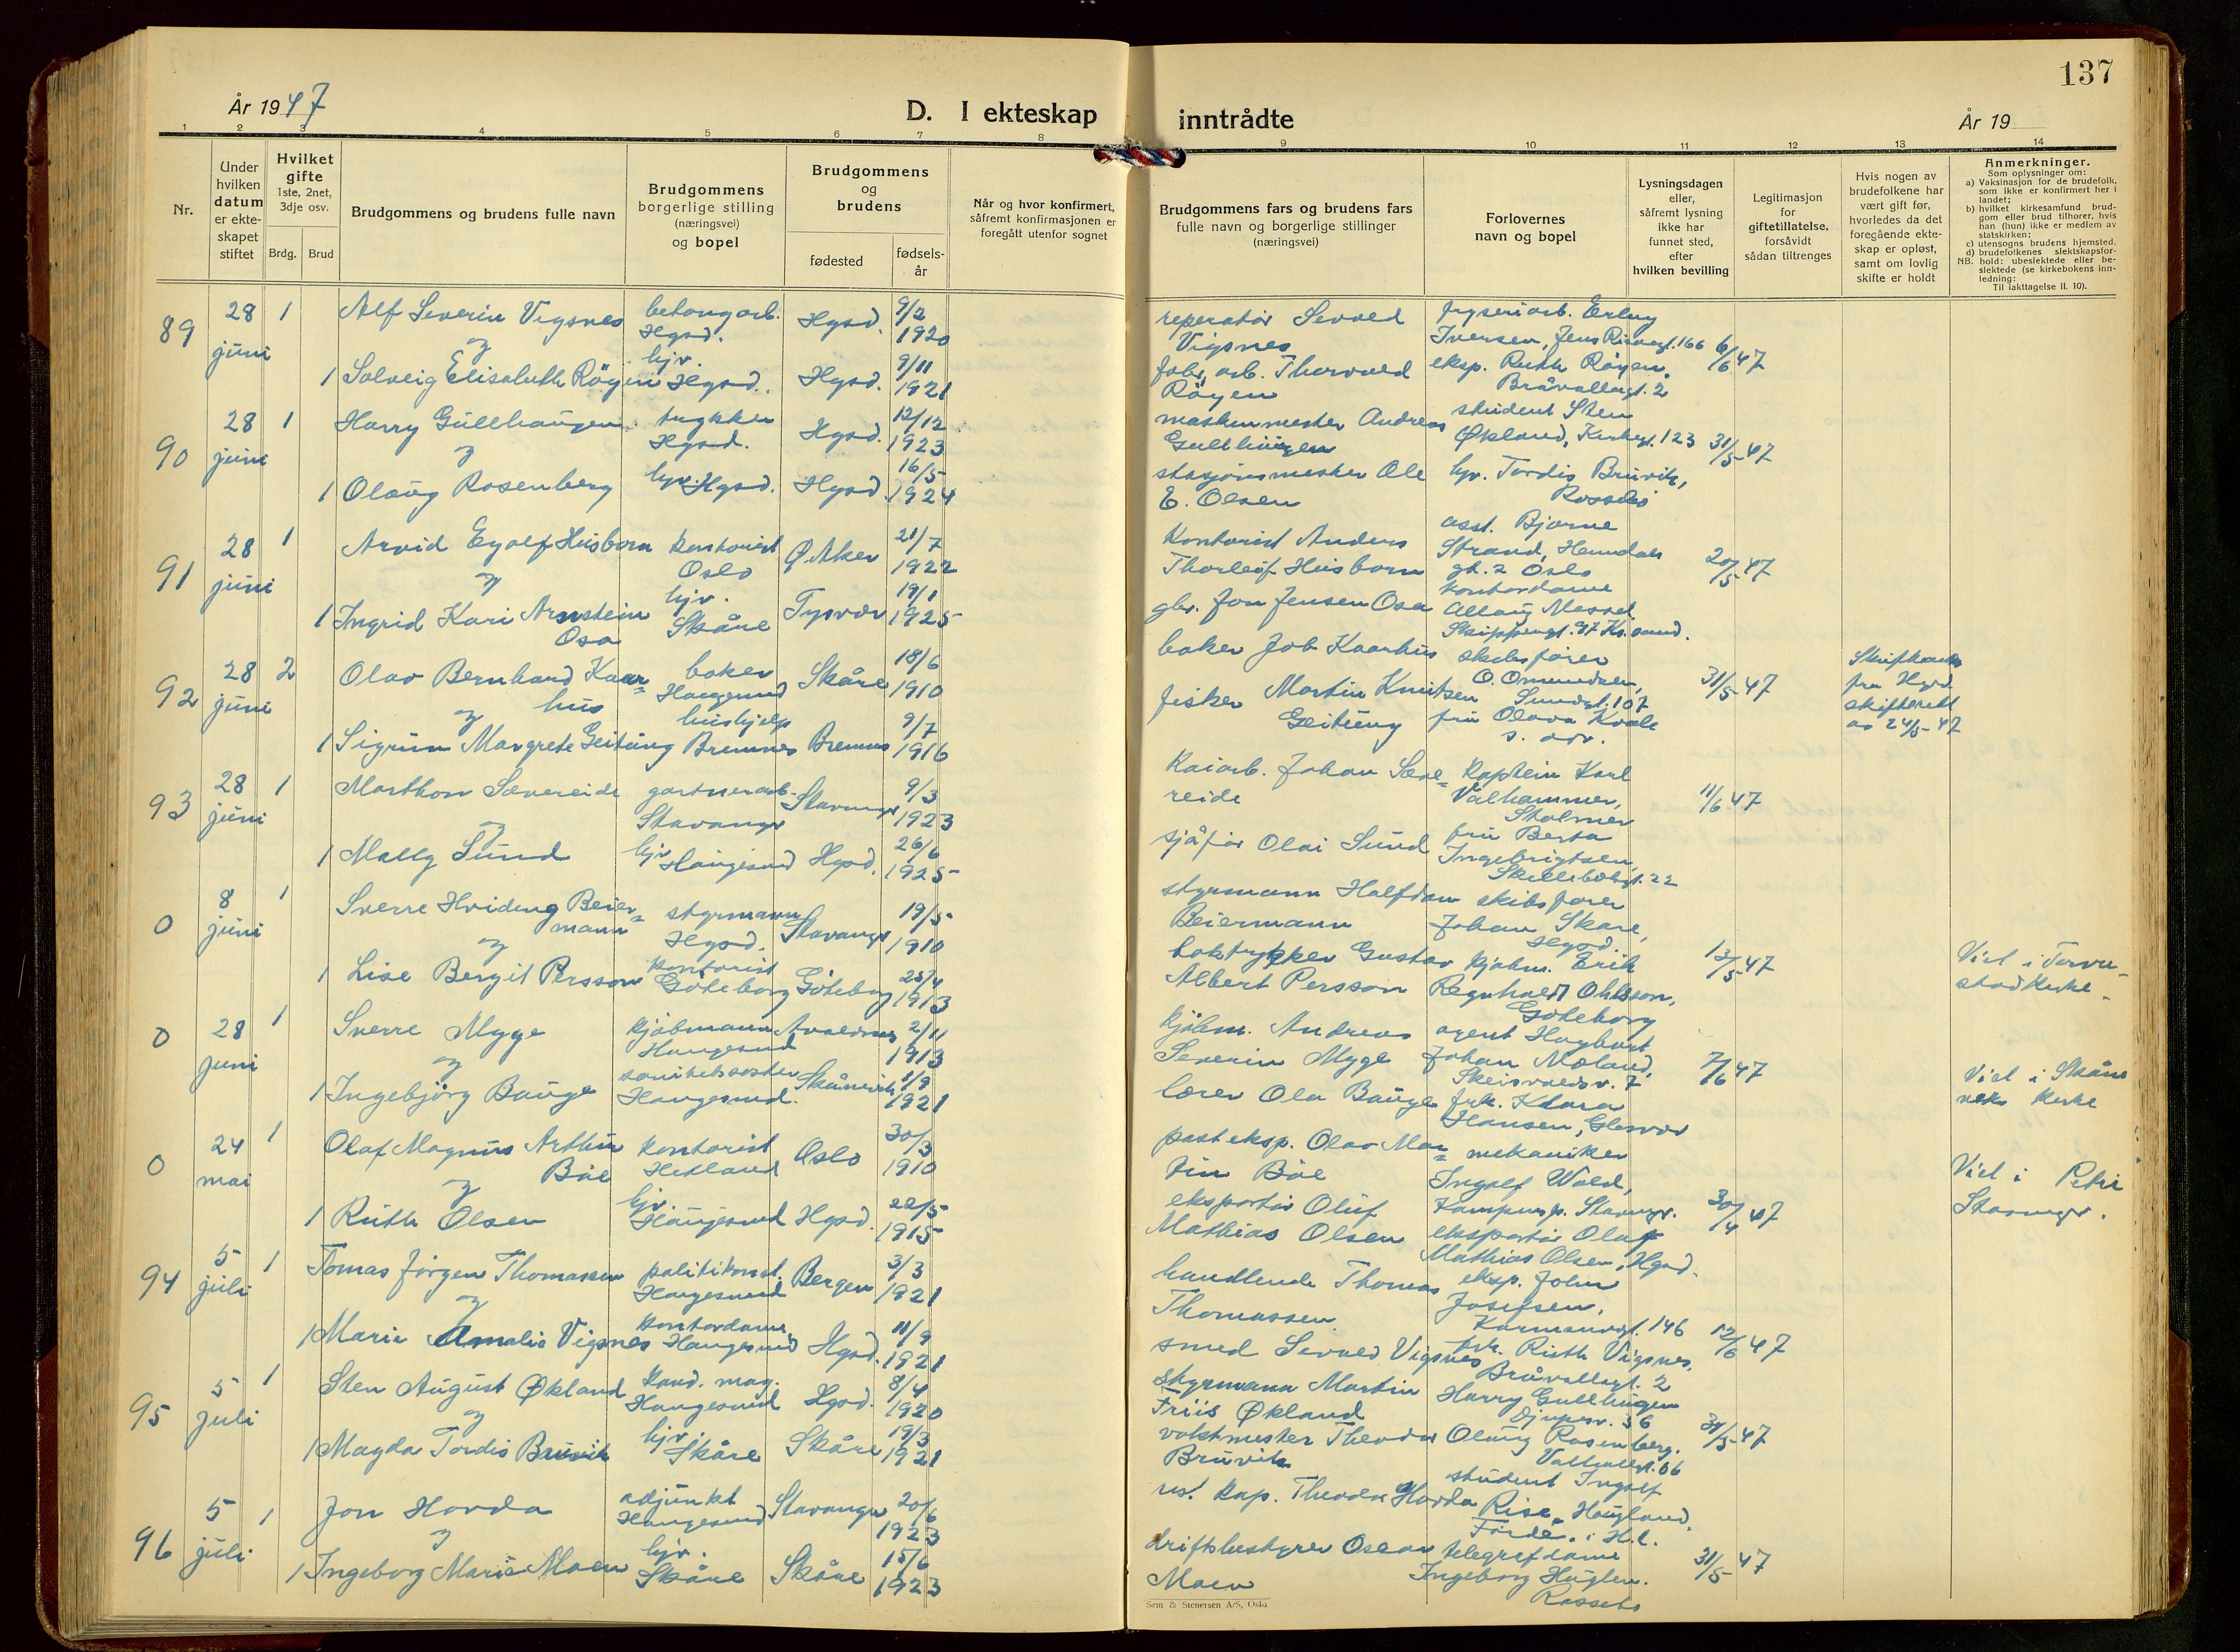 137
År 1947
D. I ekteskap inntrådte
År 19
1 2 3 4 5 6 7 8 9 10 11 12 13 14
Nr.
Under
hvilken
datum
er ekte-
skapet
stiftet
Hvilket
gifte
1ste, 2net,
3dje osv.
Brdg. Brud
Brudgommens og brudens fulle navn
Brudgommens
borgerlige stilling
(næringsvei)
og bopel
Brudgommens
og
brudens
fødested
fødsels-
år
Når og hvor konfirmert,
såfremt konfirmasjonen er
foregått utenfor sognet
Brudgommens fars og brudens fars
fulle navn og borgerlige stillinger
(næringsvei)
Forlovernes
navn og bopel
Lysningsdagen
eller,
såfremt lysning
ikke har
funnet sted,
efter
hvilken bevilling
Legitimasjon
for
giftetillatelse,
forsåvidt
sådan tiltrenges
Hvis nogen av
brudefolkene har
vært gift før,
hvorledes da det
foregående ekte-
skap er opløst,
samt om lovlig
skifte er holdt
Anmerkninger.
Som oplysninger om:
a) Vaksinasjon for de brudefolk,
som ikke er konfirmert her i
landet;
b) hvilket kirkesamfund brud-
gom eller brud tilhører, hvis
han (hun) ikke er medlem av
statskirken;
c) utensogns brudens hjemsted.
d) brudefolkenes slektskapsfor-
NB. hold: ubeslektede eller be-
slektede (se kirkebokens inn-
ledning:
Til iakttagelse II. 10).
89 28 juni 1 Alf Severin Vigsnes betongarb. Hgsd. Hgsd. 9/2 1920
og
1 Solveig Elisabeth Røyen hjv. Hgsd. Hgsd. 9/11 1921
reperatør Sevald Vigsnes
fabr. arb. Thorvald Røyen
fryseriarb. Erling
Iversen, Jens Risøegt. 166
eksp. Ruth Røyen,
Bråvallagt. 2
6/6 47
90 28 juni 1 Harry Gullhaugen trykker Hgsd. Hgsd. 12/12 1923
og
1 Olaug Rosenberg hjv. Hgsd. Hgsd. 16/5 1924
maskinmester Andreas
Gullhaugen
stasjonsmester Ole
E. Olsen
student Sten
Økland, Kirkegt. 123
hjv. Tordis Bruvik,
Rossabø
31/5 47
91 28 juni 1 Arvid Eyolf Husborn kontorist Oslo Ø. Aker 21/7 1922
og
1 Ingrid Kari Arnstein
Osa hjv. Skåre Tysvær 19/1 1925
Kontorist Anders
Thorleif Husborn
gbr. Jon Jensen Osa
asst. Bjarne
Strand, Hemdals
gt. 2 Oslo
kontordame
Allaug Messel
Skippergt. 97 Kr. sand.
20/5 47
92 28 juni 2 Olav Bernhard Kaar-
hus baker Haugesund Skåre 18/6 1910
og
1 Sigrun Margrete Geitung hushjelp Bremnes Bremnes 9/7 1916
baker Job Kaarhus
fisker Martin Knutsen
Geitung
skibsfører
O. Omundsen,
Sundgt. 107
fru Olava Kvale
s. adr.
31/5 47
Skifteattest
fra Hgsd.
skifterett
av 24/5-47
93 28 juni 1 Marthon Sævereide gartnerarb. Stavanger Stavanger 9/3 1923
og
1 Mally Sund hjv. Haugesund Hgsd. 26/6 1925
Kaiarb. Johan Sæve-
reide
sjåfør Olai Sund
kaptein Karl
Valhammer,
Stolmen
fru Berta
Ingebrigtsen,
Skillebekgt. 22
11/6 47
0 8 juni 1 Sverre Hviding Beier-
mann styrmann Hgsd. Stavanger 19/5 1910
og
1 Lise Bergit Persson kontorist Göteborg Göteborg 25/4 1913
styrmann Halfdan
Beiermann
boktrykker Gustav
Albert Persson
skibsfører
Johan Skare,
Hgsd.
kjøbm. Erik
Regnhald Ohlsson,
Göteborg
13/5 47
Viet i Torvastad kirke.
0 28 juni 1 Sverre Mygge kjøbmann Haugesund Avaldsnes 2/11 1913
og
1 Ingebjørg Bauge sanitetssøster Haugesund. Skånevik 1/9 1921
kjøbm. Andreas
Severin Mygge
lærer Ola Bauge
agent Hagbart
Johan Nøland,
Skeisvollsv. 7
frk. Klara
Hansen, Glesvær
7/6 47
Viet i Skåne-
viks kirke
0 24 mai 1 Olaf Magnus Arthur
Bøe kontorist Hetland Oslo 30/3 1910
og
1 Ruth Olsen hjv. Haugesund Hgsd. 22/5 1915
posteksp. Olav Mar-
tin Bøe
eksportør Oluf
Mathias Olsen
mekaniker
Ingolf Wold,
Kampengt. Stavngr.
eksportør Oluf
Mathias Olsen, Hgsd.
30/4 47
Viet i Petri
Stavngr.
94 5 juli 1 Tomas Jørgen Thomassen politikonst. Haugesund Bergen 3/3 1921
og
1 Marie Amalie Vigsnes kontordame Haugesund Hgsd. 11/9 1921
handlende Thomas
Thomassen
smed Sevald Vigsnes
eksp. John
Josefsen,
Karmsundgt. 146
frk. Ruth Vigsnes,
Bråvallagt. 2
12/6 47
95 5 juli 1 Sten August Økland kand. mag. Haugesund Hgsd. 8/4 1920
og
1 Magda Tordis Bruvik hjv. Skåre Skåre 19/3 1921
styrmann Martin
Friis Økland
vaktmester Theodor
Bruvik
Harry Gullhaugen
Djupesv. 36
Olaug Rosenberg.
Valhallgt. 66
31/5 47
96 5 juli 1 Jon Hovda adjunkt Haugesund Stavanger 20/6 1923
og
1 Ingeborg Marie Moen hjv. Skåre Skåre 15/6 1923
rut. kap. Theodor Hovda
driftsbestyrer Oscar
Moen
student Ingolf
Rise, Haugland,
Førde i H.l.
telegrafdame
Ingeborg Huglen.
Rossebø
31/5 47
Sem & Stenersen A/S, Oslo